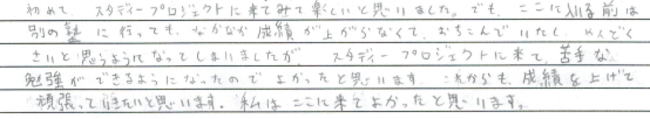 初めて、スタディープロジェクトに来てみて楽しいと思いました。でも、ここに入る前は
別の塾に行っても、なかなか成績が上がらなくて、おちこんでいたし、めんどく
さいと思うようになってしまいましたが、スタディープロジェクトに来て、苦手な
勉強ができるようになったのでよかったと思います。これからも、成績を上げて
頑張って行きたいと思います。私はここに来てよかったと思います。